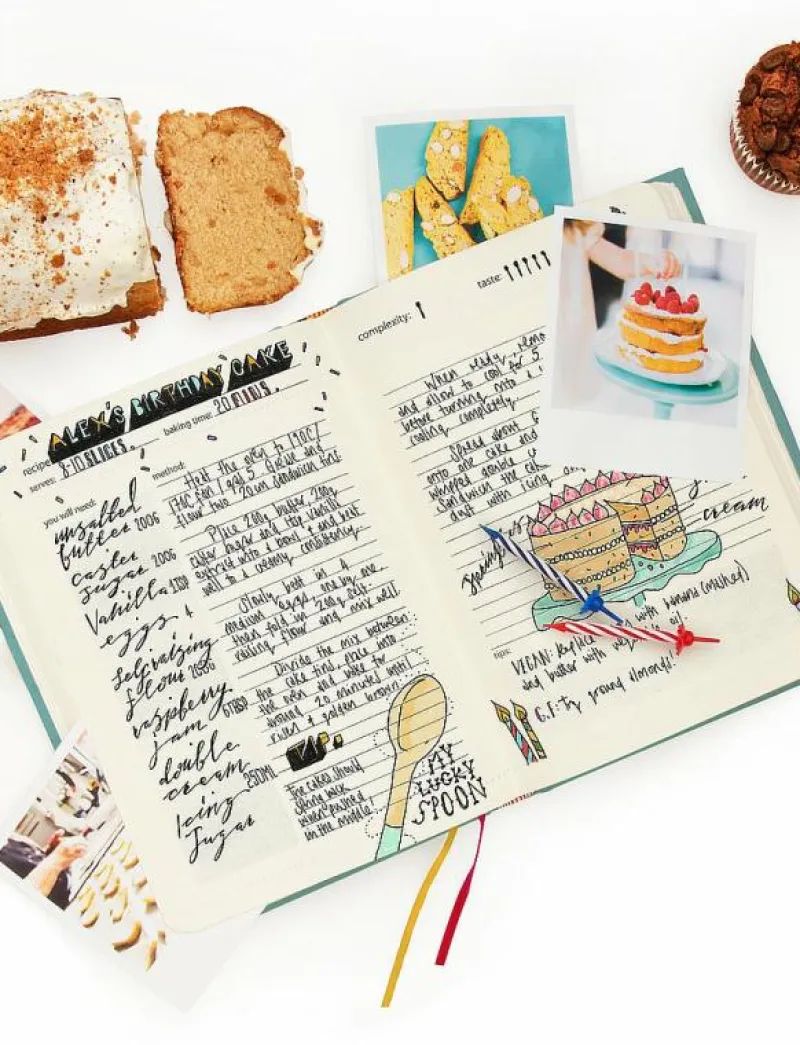 recipe: ALEX'S BIRTHDAY CAKE
serves: 8-10 SLICES.
baking time: 20 MINS.
you will need:
unsalted
butter 200G
caster
sugar 200G
Vanilla 1TSP
eggs 4
Self-raising
flour 200G
raspberry
jam 6TBSP
double
cream 250ML
Icing
Sugar
method:
Heat the oven to 190C/
170C fan/gas 5. Grease and
flour two 20cm sandwich tins.
Place 200g butter 200g
caster sugar and tsp Vanilla
extract into a bowl and beat
well to a creamy consistency.
Slowly beat in 4
medium eggs, one by one,
then fold in 200g self-
raising flour and mix well.
Divide the mix between
the cake tins, place into
the oven and bake for
around 20 minutes until
risen & golden brown.
The cakes should
spring back
when pushed
in the middle.
MY
LUCKY
SPOON
complexity:
taste:
When ready, remo
and allow to cool for 5
before turning onto a
cooling completely.
Spread about
onto one cake and
whipped double
Sandwich the cak
dust with icing
cream
tips:
VEGAN: with banana (mashed)
and butter with oil!
G.F: try ground almonds!